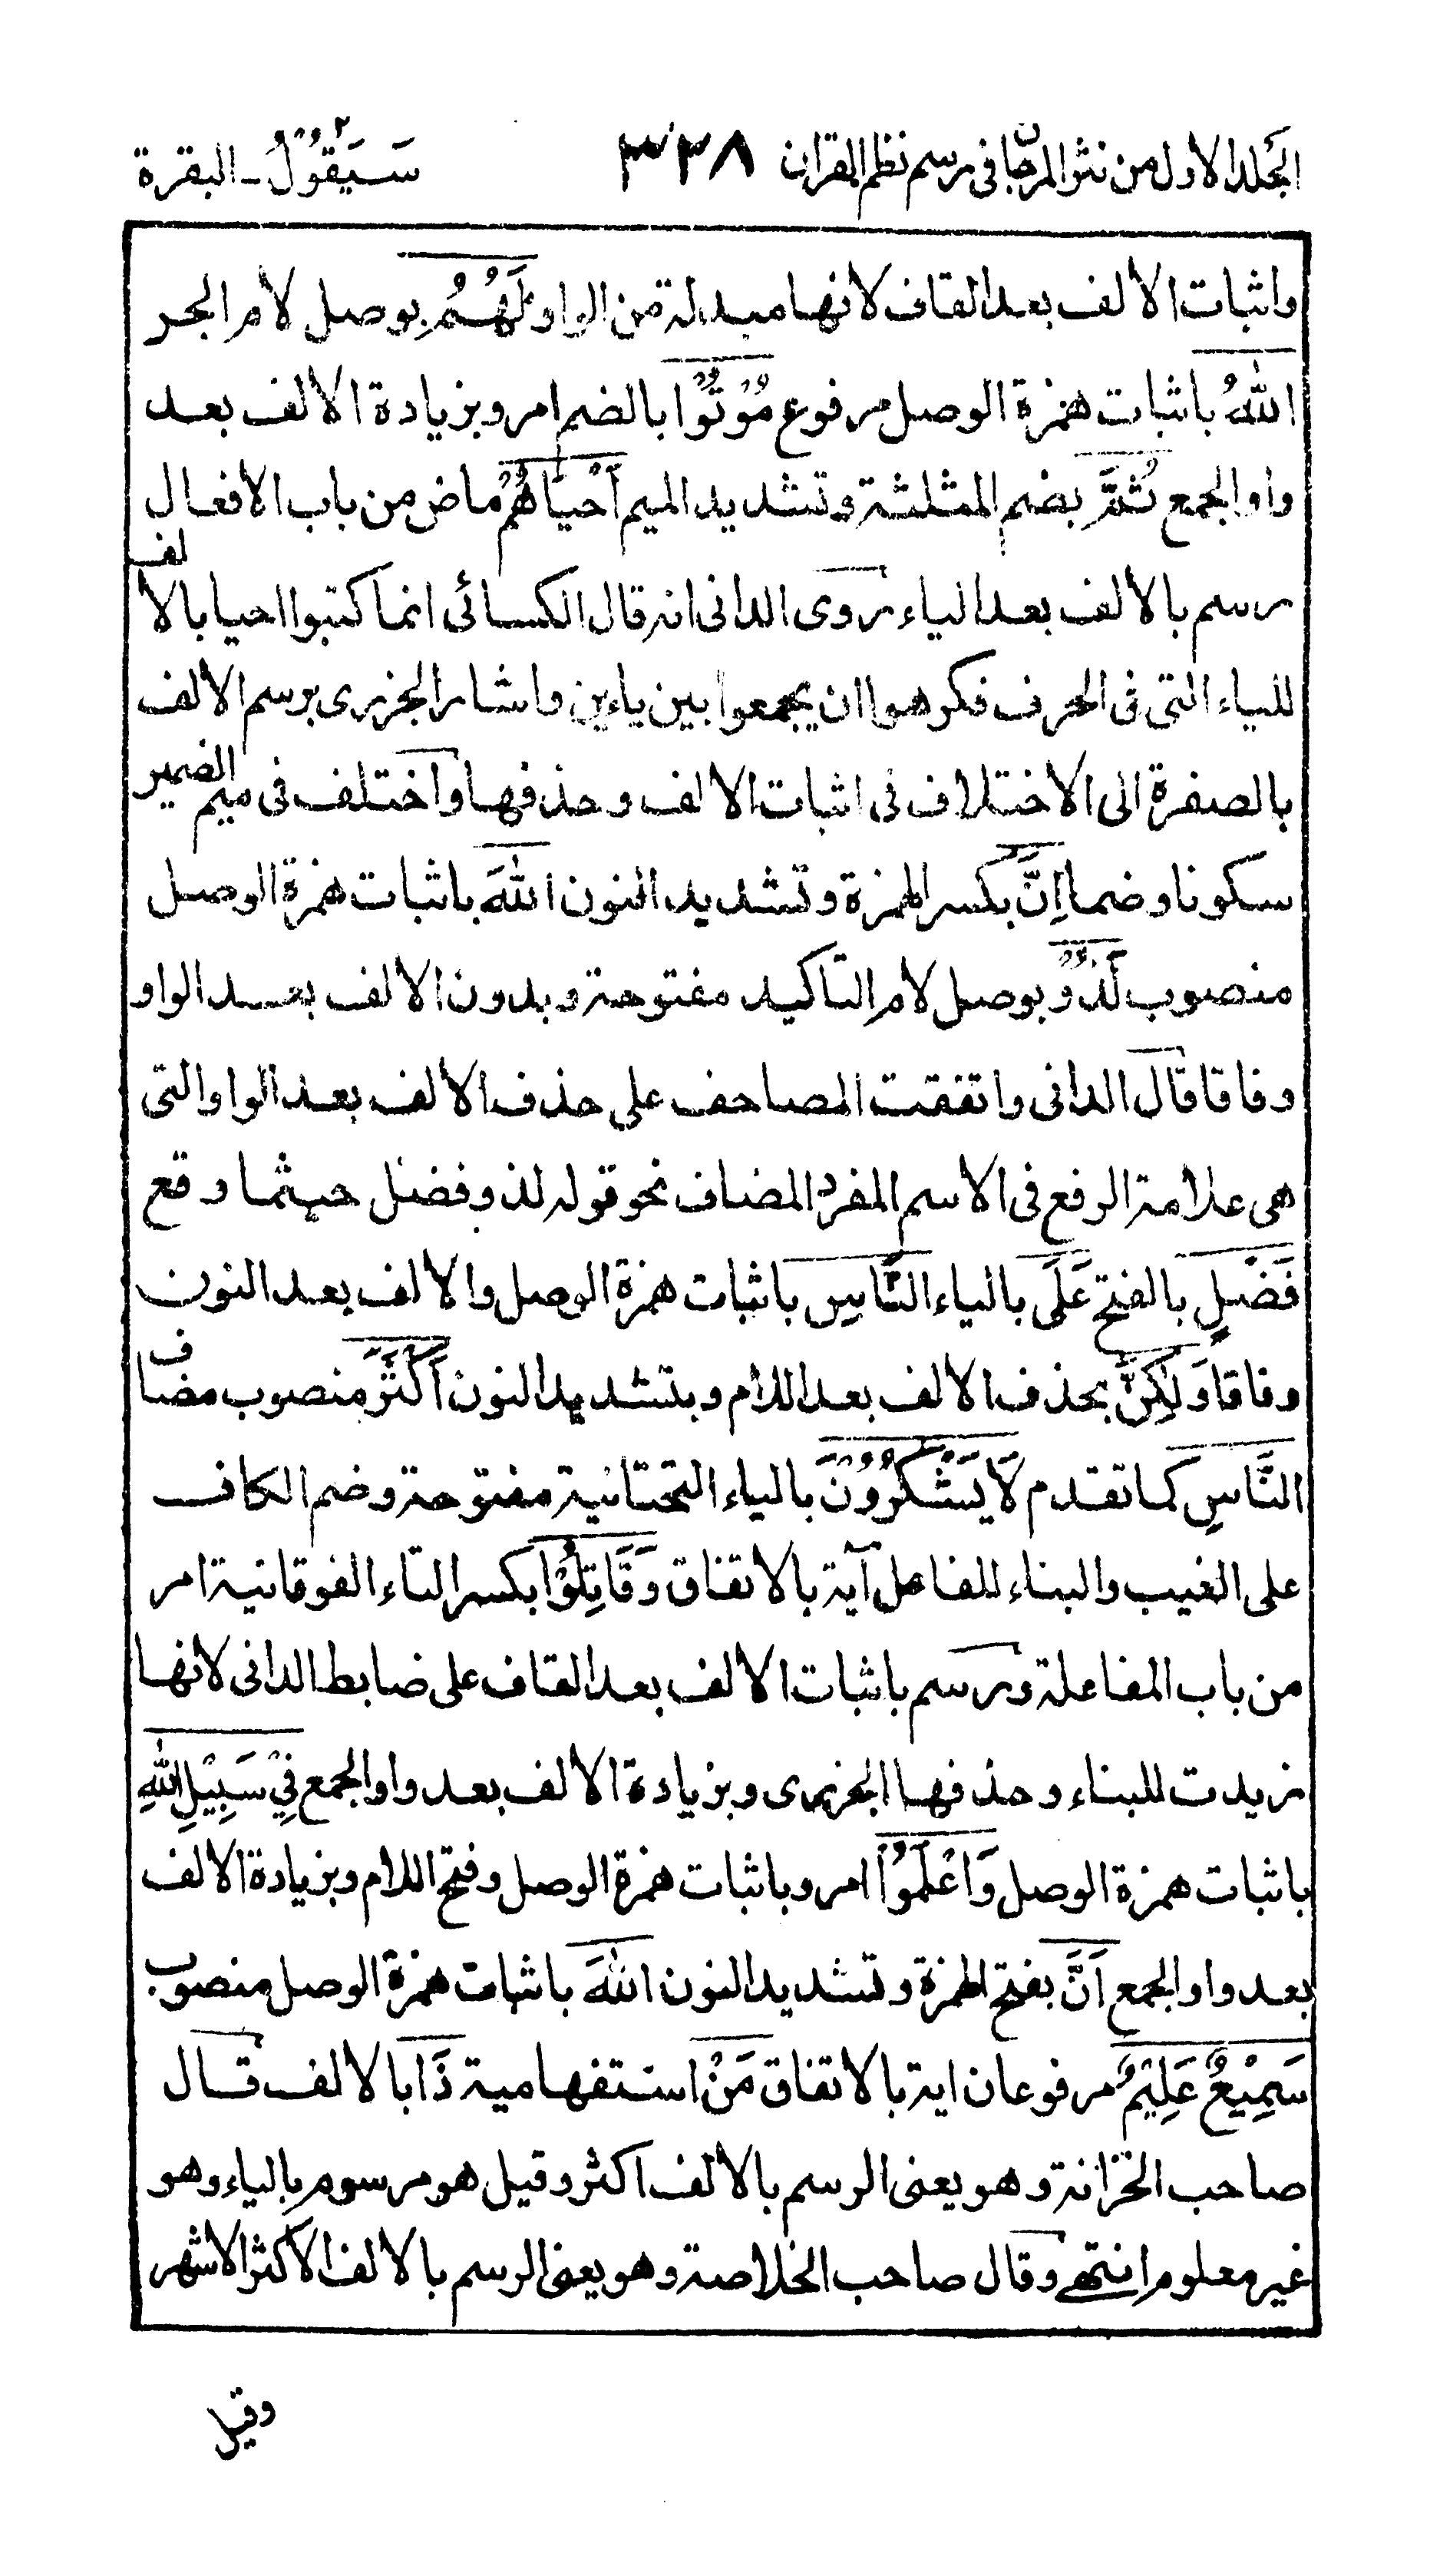 الجلد الاول من نثر المرجان فى رسم نظم القران ٣٣٨ سَيَقُوْلُ ٢ - البقرة
واثبات الالف بعد القاف لانها مبدلة من الواو لَهُمُ بوصل لام الجر
اللّٰهُ باثبات همزة الوصل مرفوع مُوْتُوْا بالضم امر وبزيادة الالف بعد
واو الجمع ثُمَّ بضم المثلثة وتشديد الميم اَحْيَاهُمْ ماض من باب الافعال
رسم بالالف بعد الياء روى الدانى انه قال الكسائى انما كتبوا احيا بالالف
للياء التى فى الحرف فكرهوا ان يجمعوا بين ياءين واشار الجزرى برسم الالف
بالصفرة الى الاختلاف فى اثبات الالف وحذفها واختلف فى ميم الضمير
سكونا وضما اِنَّ بكسر الهمزة وتشديد النون اللّٰهَ باثبات همزة الوصل
منصوب لَذُوْ بوصل لام التاكيد مفتوحة وبدون الالف بعد الواو
وفاقا قال الدانى واتفقت المصاحف على حذف الالف بعد الواو التى
هى علامة الرفع فى الاسم المفرد المضاف نحو قوله لذو فضل حيثما وقع
فَضْلٍ بالفتح عَلَى بالياء النَّاسِ باثبات همزة الوصل والالف بعد النون
وفاقا وَلٰكِنَّ بحذف الالف بعد اللام وبتشديد النون اَكْثَرَ منصوب مضاف
النَّاسِ كما تقدم لَا يَشْكُرُوْنَ بالياء التحتانية مفتوحة وضم الكاف
على الغيب والبناء للفاعل آية بالاتفاق وَقَاتِلُوْا بكسر التاء الفوقانية امر
من باب المفاعلة ورسم باثبات الالف بعد القاف على ضابط الدانى لانها
زيدت للبناء وحذفها الجزرى وبزيادة الالف بعد واو الجمع فِيْ سَبِيْلِ اللّٰهِ
باثبات همزة الوصل وَاعْلَمُوْا امر وباثبات همزة الوصل وفتح اللام وبزيادة الالف
بعد واو الجمع اَنَّ بفتح الهمزة وتشديد النون اللّٰهَ باثبات همزة الوصل منصوب
سَمِيْعٌ عَلِيْمٌ مرفوعان اية بالاتفاق مَنْ استفهامية ذَا بالالف قال
صاحب الخزانة وهو يعنى الرسم بالالف اكثر وقيل هو مرسوم بالياء وهو
غير معلوم انتهى وقال صاحب الخلاصة وهو يعنى الرسم بالالف الاكثر الاشهر
وقيل